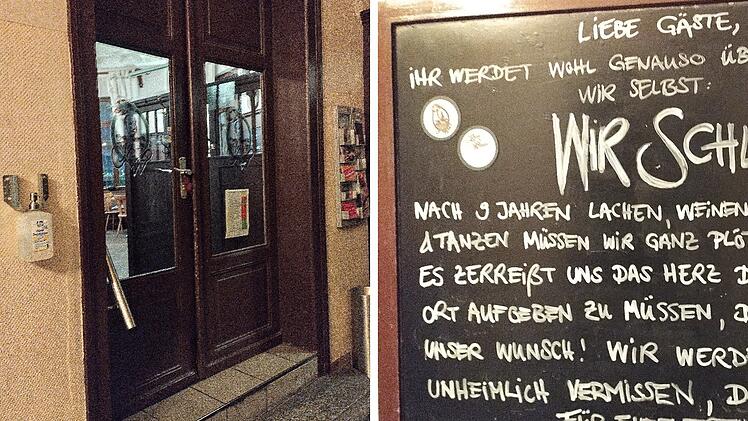 LIEBE GÄSTE,
IHR WERDET WOHL GENAUSO ÜB
WIR SELBST:
WIR SCHL
NACH 9 JAHREN LACHEN, WEINEN
& TANZEN MÜSSEN WIR GANZ PLÖT
ES ZERREIßT UNS DAS HERZ D
ORT AUFGEBEN ZU MÜSSEN, D
UNSER WUNSCH! WIR WERD
UNHEIMLICH VERMISSEN, D
FÜR